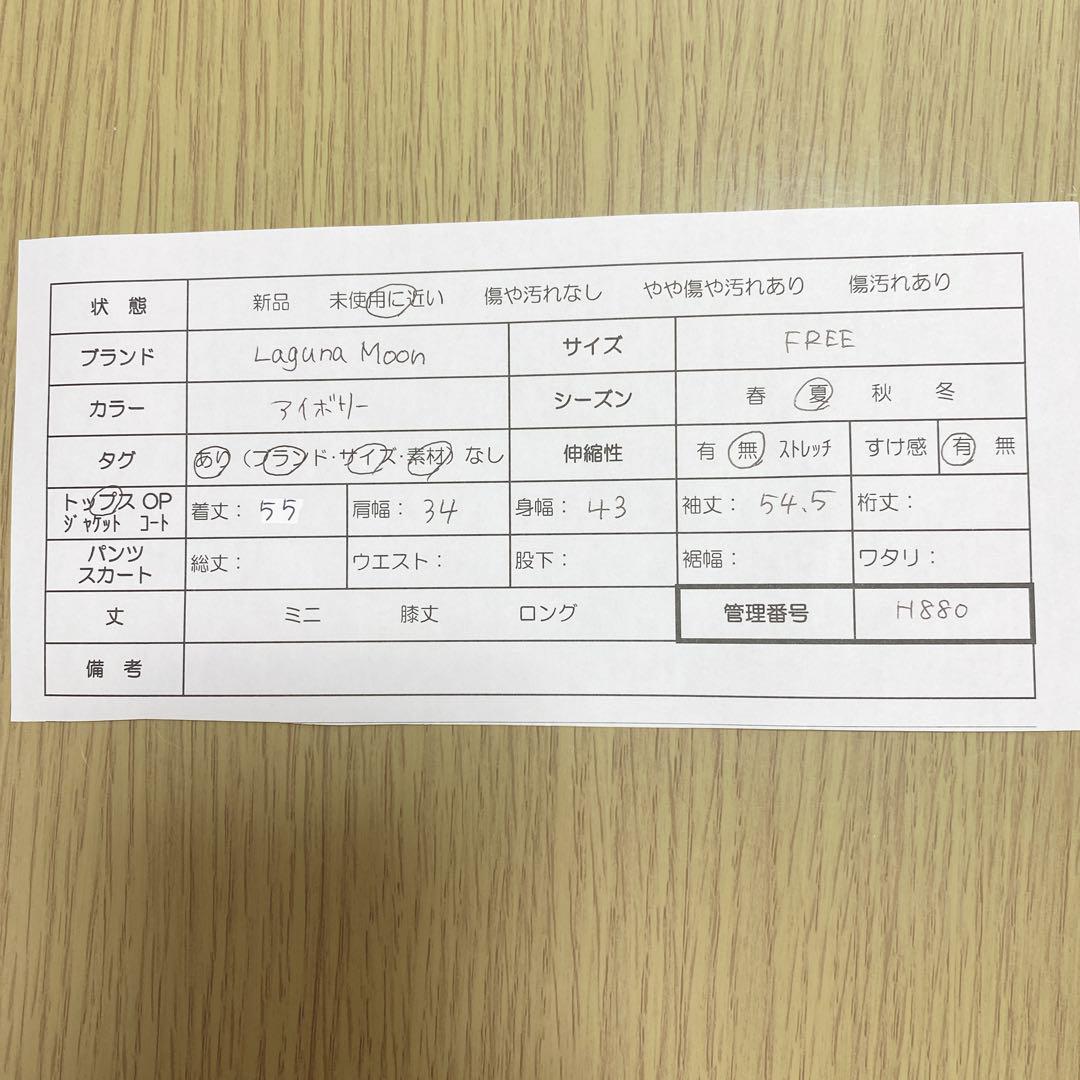 状 態 新品 未使用に近い 傷や汚れなし やや傷や汚れあり 傷汚れあり
ブランド Laguna Moon サイズ FREE
カラー アイボリー シーズン 春 夏 秋 冬
タグ あり(ブランド・サイズ・素材) なし 伸縮性 有 無 ストレッチ すけ感 有 無
トップス OP
ジャケット コート 着丈: 55 肩幅: 34 身幅: 43 袖丈: 54.5 桁丈:
パンツ
スカート 総丈: ウエスト: 股下: 裾幅: ワタリ:
丈 ミニ 膝丈 ロング 管理番号 H880
備 考